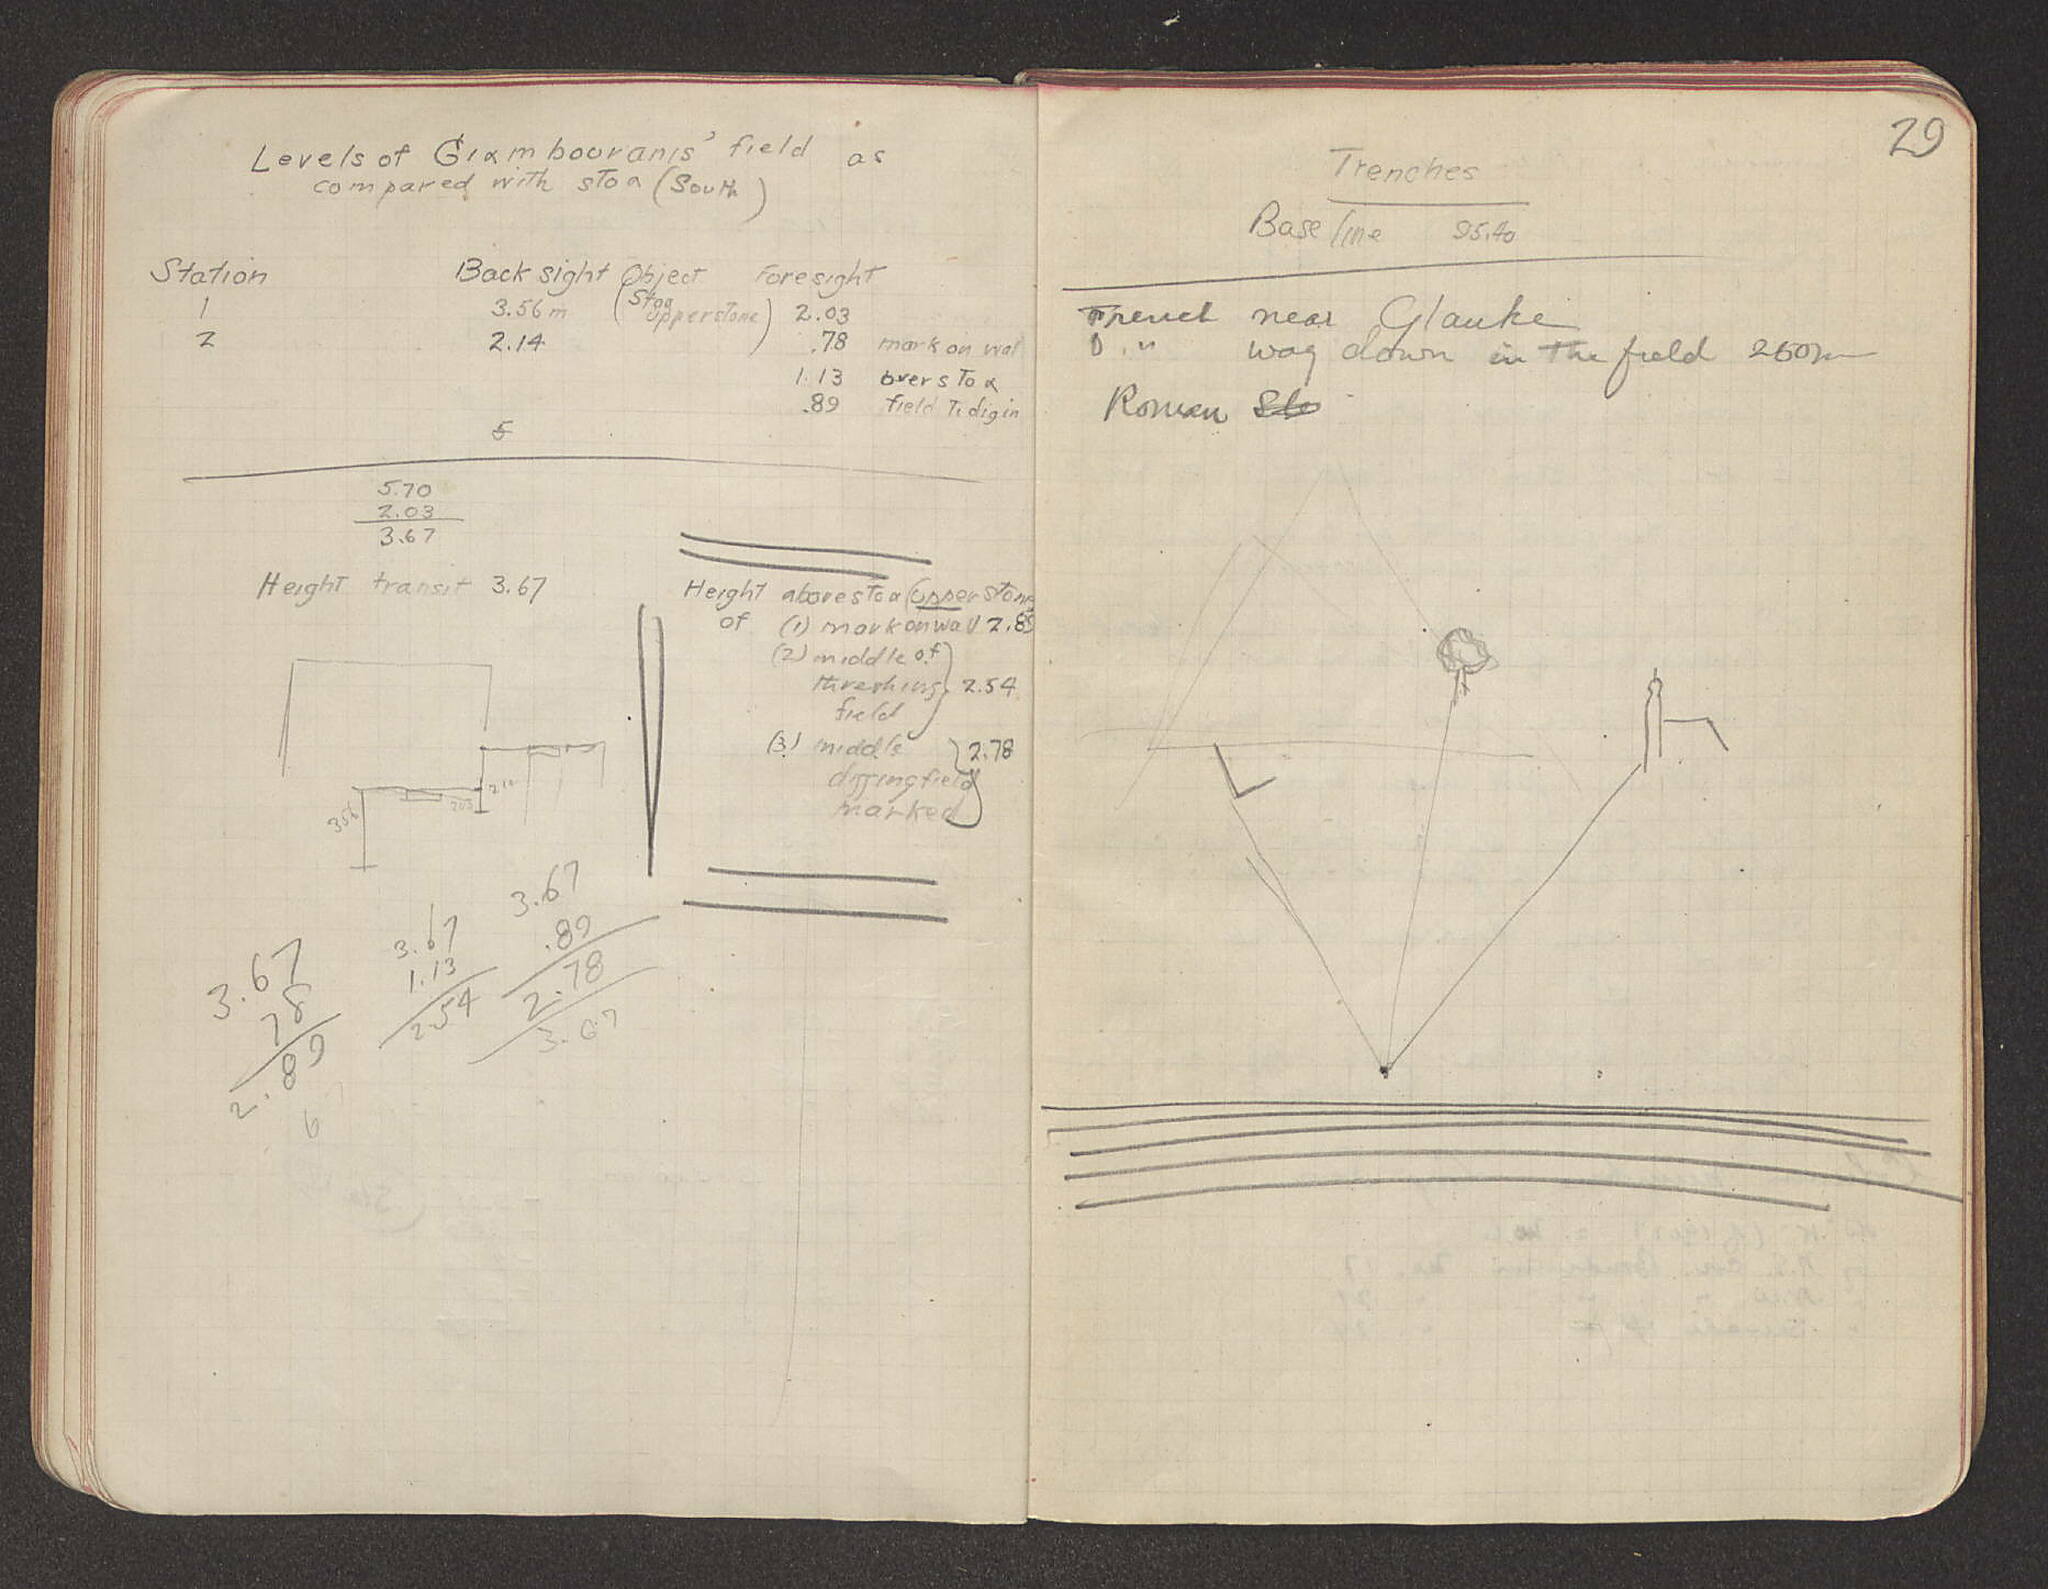 Levels of Giambouranis' field as
compared with stoa (South)
Station Back sight Object Foresight
1 3.56 m (Stoa upper stone) 2.03
2 2.14 .78 mark on wal
1.13 over stoa
.89 field to dig in
5
5.70
2.03
3.67
Height transit 3.67
Height above stoa (upper stone
of (1) mark on wall 2.89
(2) middle of
threshing 2.54
field
(3) middle 2.78
digging field
marked
356
203
3.67
78
2.89
6
3.67
1.13
2.54
3.67
.89
2.78
3.67
29
Trenches
Base line 95.40
Trench near Glauke
" way down in the field 250m
Roman Sto